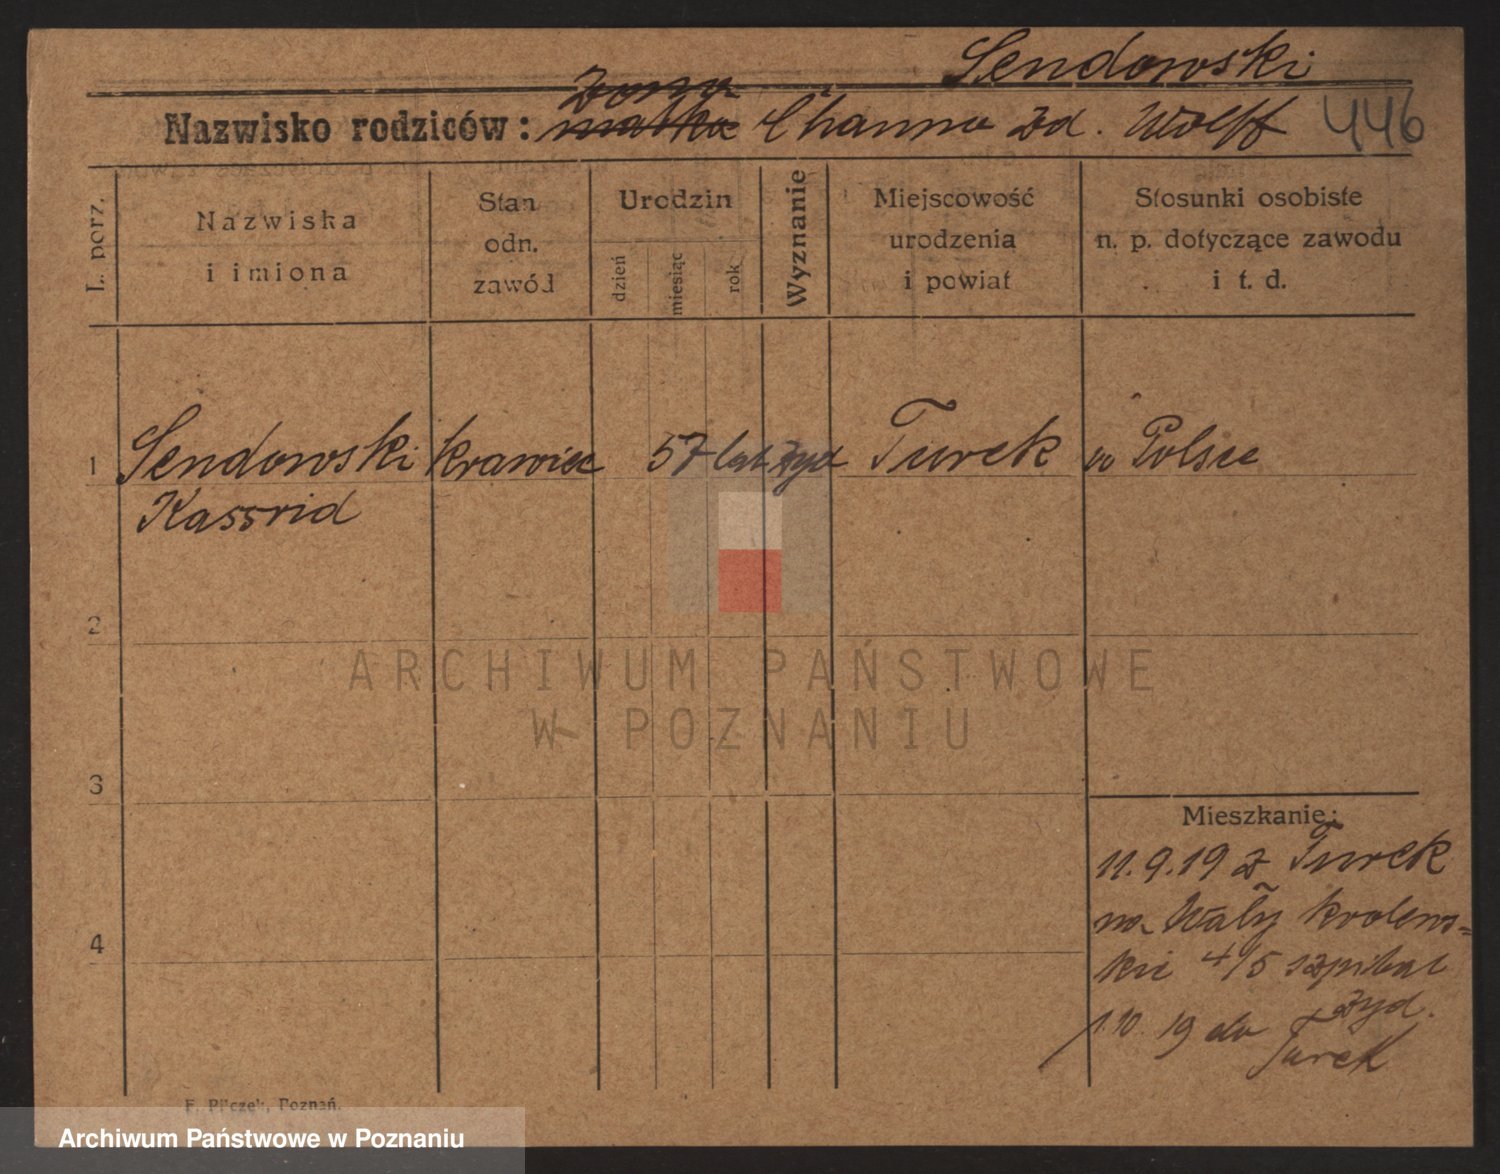 Sendowski
żona
Nazwisko rodziców: matka Channa zd. Wolff 446
L. porz.
Nazwiska
i imiona
Stan
odn.
zawód
Urodzin
dzień
miesiąc
rok
Wyznanie
Miejscowość
urodzenia
i powiat
Stosunki osobiste
n. p. dotyczące zawodu
i t. d.
1 Sendowski krawiec 57 lat żyd Turek w Polsce
Kassrid
2
3
4
Mieszkanie:
11.9.19 z Turek
na Wały krolews=
kie 4/5 szpital
żyd.
1.10.19 do
Turek
F. Pilczek, Poznań.
ARCHIWUM PAŃSTWOWE
W POZNANIU
Archiwum Państwowe w Poznaniu